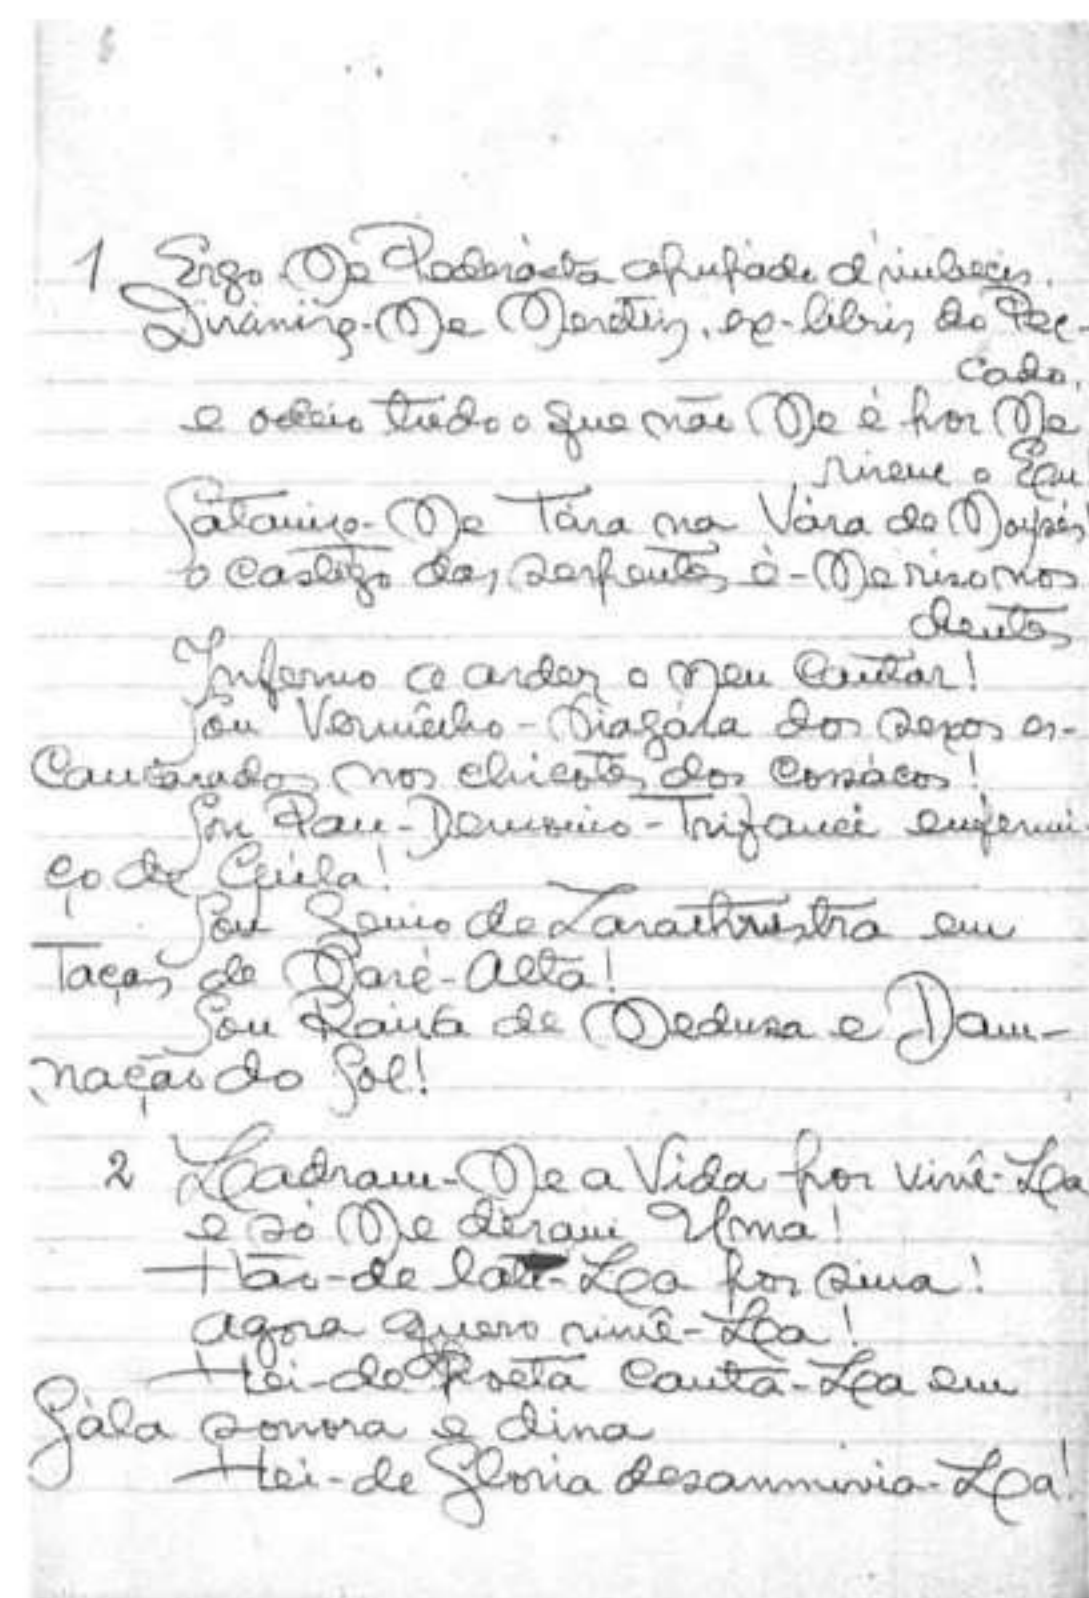 1 Ergo-Me Pederásta apupádo d'imbecis,
Divinizo-Me Meretriz, ex-libris do Pec-
cado,
e odeio tudo o que não Me é por Me
rirem o Eu!
Satanizo-Me Tára na Vára de Moysés
o castigo das serpentes é-Me riso nos
dentes
Inferno a arder o Meu Cantar!
Sou Vermêlho-Niagára dos sexos es-
cancarados nos chicótes dos cossácos!
Sou Pan-Demonio-Trifauci enfermi
ço de Gúla!
Sou Genio de Zarathrustra em
Taças de Maré-Alta!
Sou Raiva de Medusa e Dam-
nação do Sol!
2 Ladram-Me a Vida por vivê-La
e só Me deram Uma!
Hão-de lati-La por sina!
agora quero vivê-La!
Hei-de Poeta cantá-La em
Gála sonora e dina
Hei-de Gloria desannuvia-La!